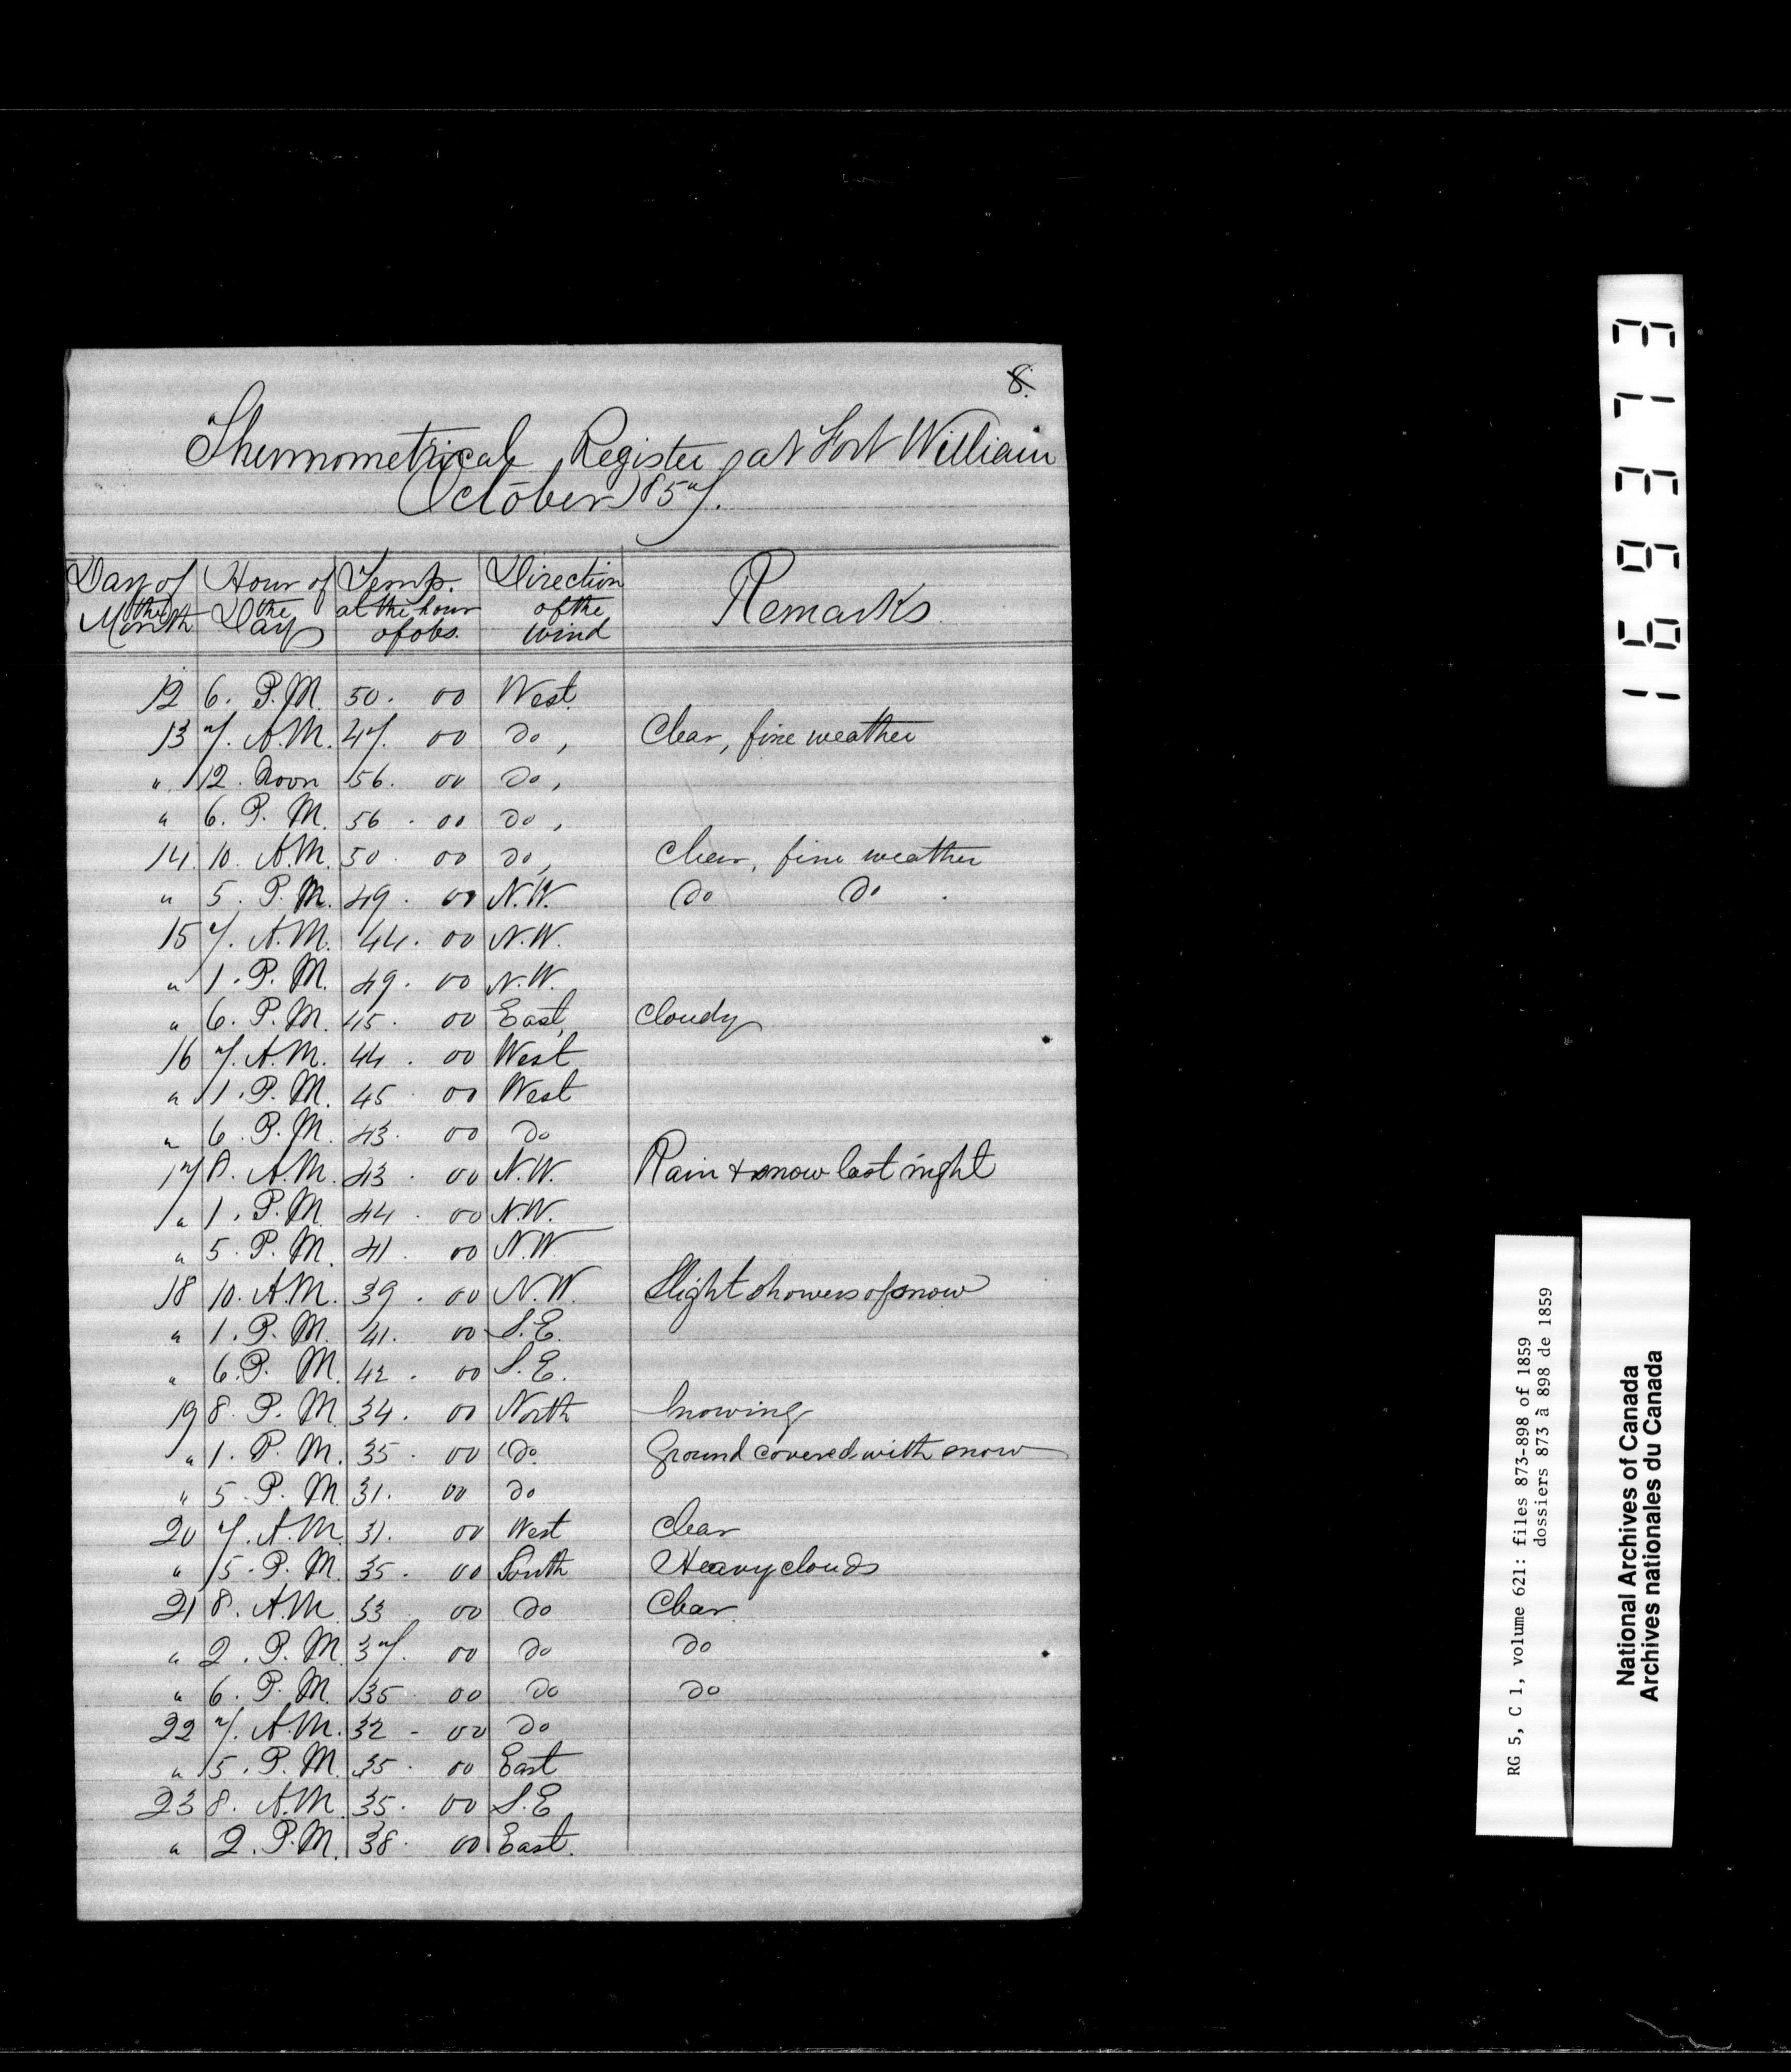 8.
Thermometrical Register at Fort William
October 1857.
Day of the Month | Hour of the Day | Temp. at the hour of obs. | Direction of the wind | Remarks
12 6. P.M. 50. 00 West.
13 7. A.M. 47. 00 Do, Clear, fine weather
" 12. Noon 56. 00 Do,
" 6. P. M. 56. 00 Do,
14. 10. A.M. 50. 00 Do, Clear, fine weather
" 5. P. M. 49. 00 N.W. Do Do.
15 7. A.M. 44. 00 N.W.
" 1. P. M. 49. 00 N.W.
" 6. P. M. 45. 00 East, Cloudy
16 7. A.M. 44. 00 West
" 1. P. M. 45. 00 West
" 6. P. M. 43. 00 Do
17 8. A.M. 43. 00 N.W. Rain & snow last night
" 1. P.M. 44. 00 N.W.
" 5. P. M. 41. 00 N.W
18 10. A.M. 39. 00 N.W. Slight showers of snow
" 1. P. M. 41. 00 S.E.
" 6. P. M. 42. 00 S.E.
19 8. P. M. 34. 00 North Snowing
" 1. P. M. 35. 00 Do. Ground covered with snow
" 5. P. M. 31. 00 Do
20 7. A.M. 31. 00 West Clear
" 5. P. M. 35. 00 South Heavy clouds
21 8. A.M. 33. 00 Do Clear.
" 2. P. M. 37. 00 Do Do
" 6. P. M. 35. 00 Do Do
22 7. A.M. 32 - 00 Do
" 5. P. M. 35. 00 East
23 8. A.M. 35. 00 S.E
" 2. P.M. 38. 00 East.
159373
RG 5, C 1, volume 621: files 873-898 of 1859
dossiers 873 à 898 de 1859
National Archives of Canada
Archives nationales du Canada